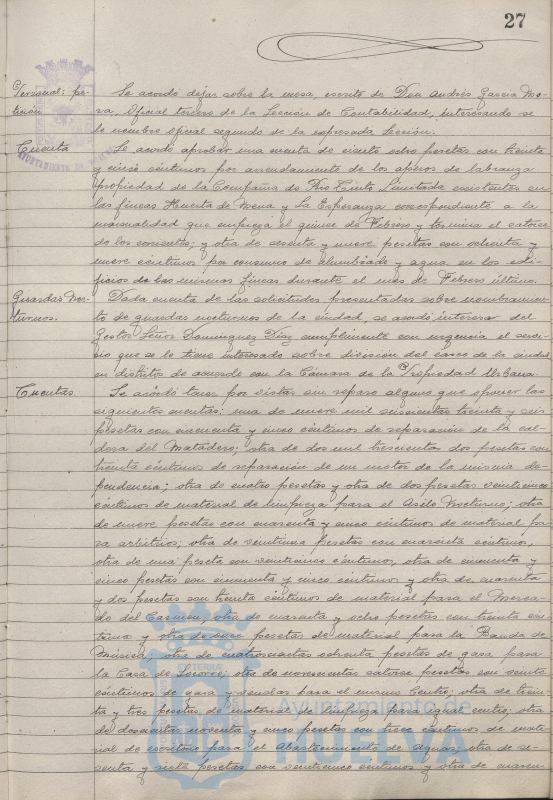 27
Personal: pe-
tición
Se acordó dejar sobre la mesa, escrito de Don Andrés García Mo-
ra, Oficial tercero de la Sección de Contabilidad, interesando se
le nombre Oficial segundo de la expresada Sección.
Cuenta
Se acordó aprobar una cuenta de ciento ocho pesetas con treinta
y cinco céntimos por arrendamiento de los aperos de labranza
propiedad de la Compañía de Rio Tinto Limitada existentes en
las fincas Huerta de Mena y La Esperanza correspondiente a la
mensualidad que empieza el quince de Febrero y termina el catorce
de los corrientes; y otra de sesenta y nueve pesetas con ochenta y
nueve céntimos por consumo de alumbrado y agua en los edi-
ficios de las mismas fincas durante el mes de Febrero último.
Guardas Noc-
turnos.
Dada cuenta de las solicitudes presentadas sobre nombramien-
to de guardas nocturnos de la ciudad, se acordó interesar del
Gestor Señor Domínguez Díaz cumplimente con urgencia el servi-
cio que se le tiene interesado sobre división del casco de la ciudad
en distritos de acuerdo con la Cámara de la Propiedad Urbana.
Cuentas.
Se acordó tener por vistas sin reparo alguno que oponer las
siguientes cuentas: una de nueve mil seiscientas treinta y seis
pesetas con cincuenta y cinco céntimos de reparación de la cal-
dera del Matadero; otra de dos mil trescientas dos pesetas con
treinta céntimos de reparación de un motor de la misma de-
pendencia; otra de cuatro pesetas y otra de dos pesetas veinticinco
céntimos de material de limpieza para el Asilo Nocturno; otra
de nueve pesetas con cuarenta y cinco céntimos de material pa-
ra arbitrios; otra de veintiuna pesetas con cuarenta céntimos,
otra de una peseta con veinticinco céntimos, otra de cincuenta y
cinco pesetas con cincuenta y cinco céntimos y otra de cuarenta
y dos pesetas con treinta céntimos de material para el Merca-
do del Carmen; otra de cuarenta y ocho pesetas con treinta cén-
timos y otra de once pesetas de material para la Banda de
Música; otra de cuatrocientas ochenta pesetas de gasa para
la Casa de Socorro; otra de novecientas catorce pesetas con veinte
céntimos de gasa y vendas para el mismo Centro; otra de trein-
ta y tres pesetas de material de limpieza para igual centro; otra
de doscientas noventa y cinco pesetas con trece céntimos de mate-
rial de escritorio para el Abastecimiento de Aguas; otra de se-
senta y siete pesetas con veinticinco céntimos y otra de cuaren-
Ayuntamiento de
HUELVA